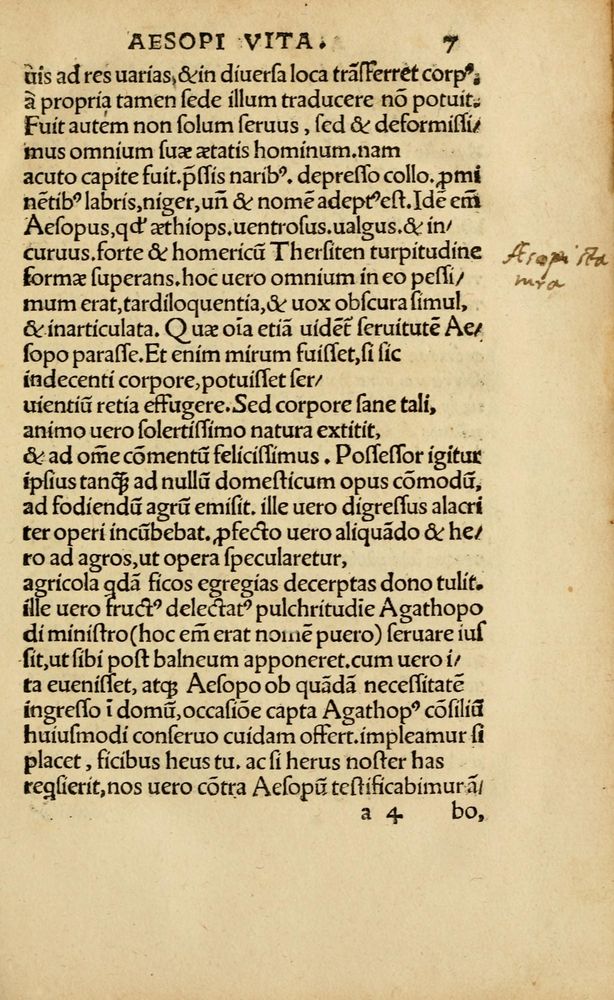 AESOPI VITA. 7
uis ad res uarias, & in diuersa loca trãsferret corpꝰ,
à propria tamen sede illum traducere nõ potuit.
Fuit autem non solum seruus, sed & deformissi/
mus omnium suæ ætatis hominum. nam
acuto capite fuit. p̃ssis naribꝰ. depresso collo. ꝓmi
nẽtibꝰ labris, niger, uñ & nomẽ adeptꝰ est. Idẽ em̃
Aesopus, qď æthiops. uentrosus. ualgus. & in/
curuus. forte & homericũ Thersiten turpitudine
formæ superans. hoc uero omnium in eo pessi/
mum erat, tardiloquentia, & uox obscura simul,
& inarticulata. Quæ oĩa etiã uidẽt᷑ seruitutẽ Ae/
sopo parasse. Et enim mirum fuisset, si sic
indecenti corpore, potuisset ser/
uientiũ retia effugere. Sed corpore sane tali,
animo uero solertissimo natura extitit,
& ad om̃e cõmentũ felicissimus. Possessor igitur
ipsius tanꝗ̃ ad nullũ domesticum opus cõmodũ,
ad fodiendũ agrũ emisit. ille uero digressus alacri
ter operi incũbebat. ꝓfecto uero aliquãdo & he/
ro ad agros, ut opera specularetur,
agricola qdã ficos egregias decerptas dono tulit.
ille uero fructꝰ delectatꝰ pulchritudĩe Agathopo
di ministro (hoc em̃ erat nomẽ puero) seruare ius
sit, ut sibi post balneum apponeret. cum uero i/
ta euenisset, atqꝫ Aesopo ob quãdã necessitatẽ
ingresso ĩ domũ, occasiõe capta Agathopꝰ cõsiliũ
huiusmodi conseruo cuidam offert. impleamur si
placet, ficibus heus tu. ac si herus noster has
reqsierit, nos uero cõtra Aesopũ testificabimur ã/
a 4 bo,
Æsopi sta
tura